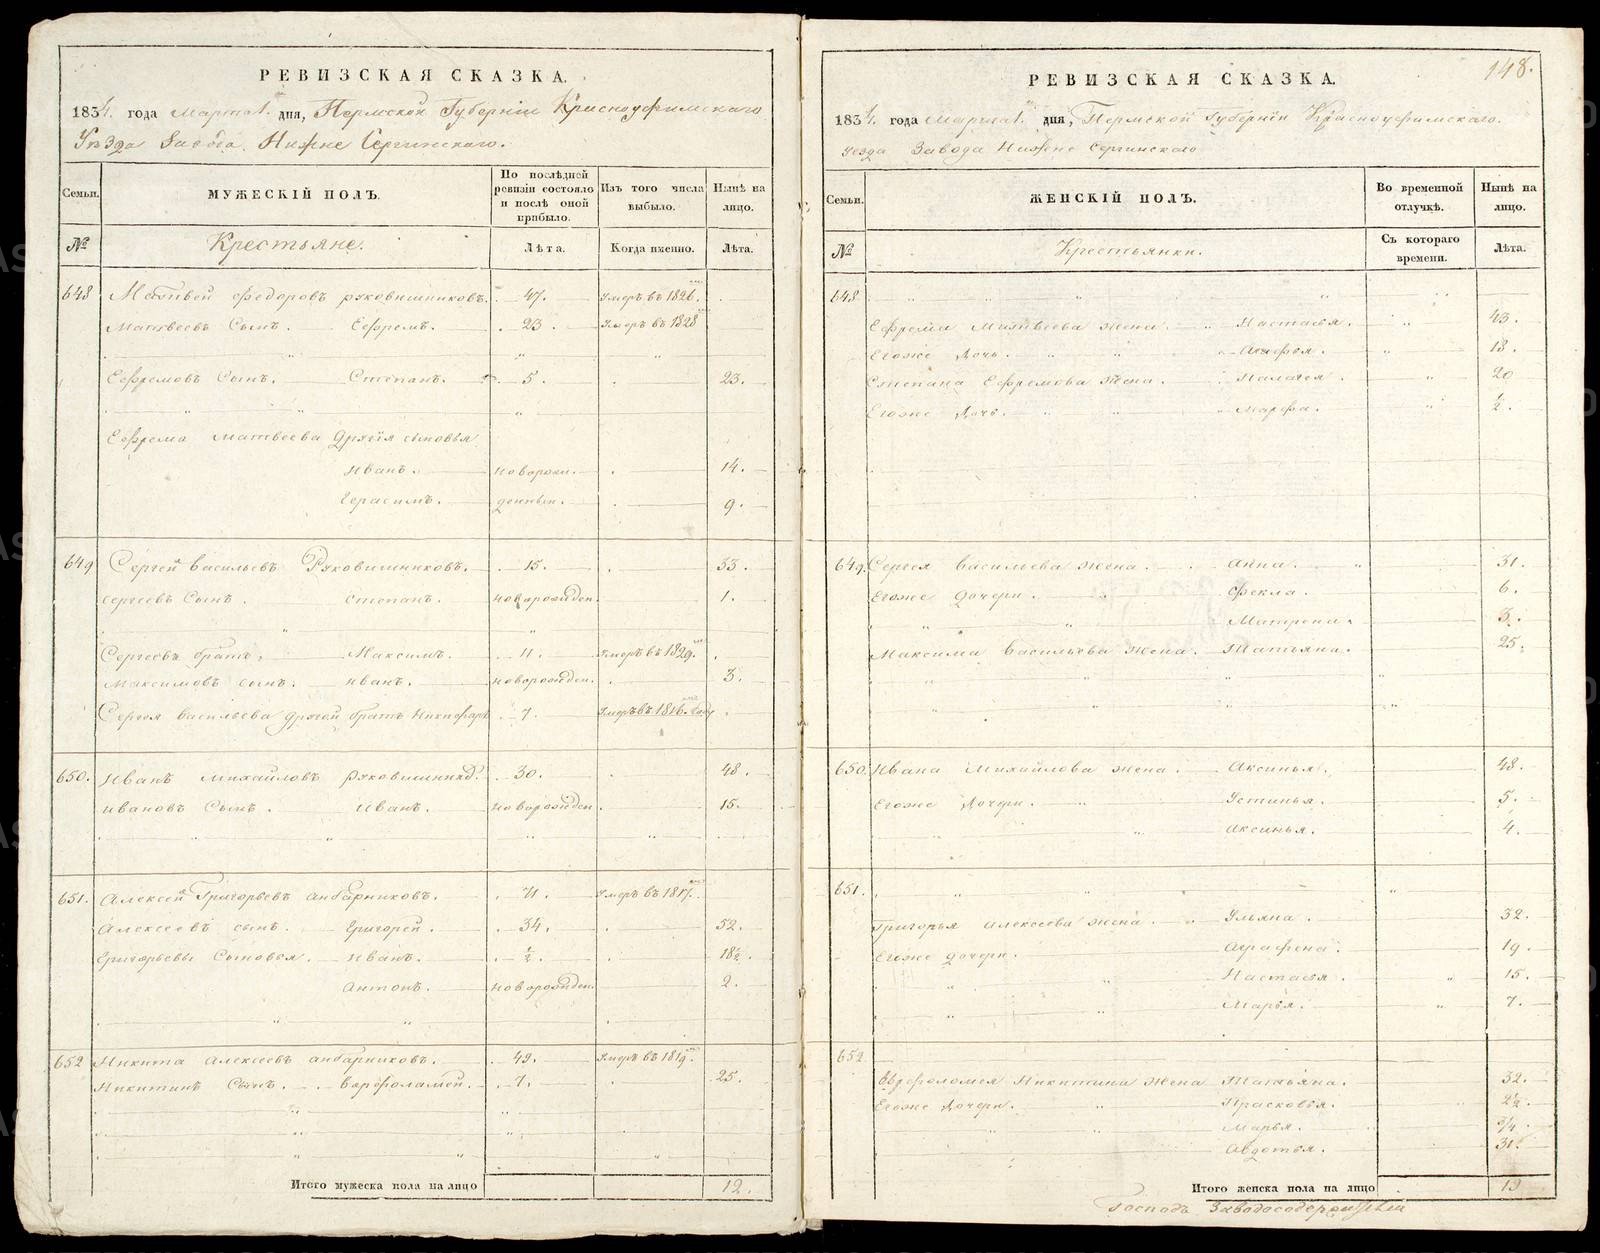 РЕВИЗСКАЯ СКАЗКА.
1834. года Марта 1. дня, Пермской Губернiи Красноуфимскаго
Уѣзда Завода Нижне Сергинскаго.
Семьи.
МУЖЕСКІЙ ПОЛЪ.
По послѣдней ревизіи состояло и послѣ оной прибыло.
Изъ того числа выбыло.
Нынѣ на лицо.
№
Крестьяне.
Лѣта.
Когда именно.
Лѣта.
648 Матвей Федоровъ Руковишниковъ. 47. Умеръ въ 1826.
Матвеевъ Сынъ. Ефремъ. 23. Умеръ въ 1828
Ефремовъ Сынъ. Степанъ. 5. 23.
Ефрема Матвеева другiя сыновья
Иванъ. новорож- 14.
Герасимъ. денныи. 9.
649 Сергей Васильевъ Руковишниковъ. 15. 33.
Сергеевъ Сынъ. Степанъ. новорожден. 1.
Сергеевъ братъ, Максимъ. 11. Умеръ въ 1829.
Максимовъ сынъ. Иванъ. новорожден. 3.
Сергея Васильева другой братъ Никифоръ 7. Умеръ въ 1816. году
650. Иванъ Михайловъ Руковишник. 30. 48.
Ивановъ Сынъ. Иванъ. новорожден. 15.
651. Алексей Григорьевъ Анбарниковъ. 71. Умеръ въ 1817.
Алексеевъ сынъ. Григорей. 34. 52.
Григорьевы Сыновья. Иванъ. ½. 18½.
Антонъ. новорожден. 2.
652 Никита Алексеевъ Анбарниковъ. 49. Умеръ въ 1819.
Никитинъ Сынъ. Варфоламей. 7. 25.
Итого мужеска пола на лицо 12.
148.
РЕВИЗСКАЯ СКАЗКА.
1834. года Марта 1. дня, Пермской Губернiи Красноуфимскаго.
уезда Завода Нижне Сергинскаго
Семьи.
ЖЕНСКІЙ ПОЛЪ.
Во временной отлучкѣ.
Нынѣ на лицо.
№
Крестьянки.
Съ котораго времени.
Лѣта.
648.
Ефрема Матвеева жена Настасья. 43.
Егоже Дочь. Агафья. 18.
Степана Ефремова Жена. Палагея. 20
Егоже Дочь. Марфа. ½.
649. Сергея Васильева жена. Анна. 31.
Егоже дочери. Фекла. 6.
Матрена. 3.
Максима Васильева жена. Татьяна. 25.
650. Ивана Михайлова жена. Аксинья. 48.
Егоже Дочери. Устинья. 5.
Аксинья. 4.
651.
Григорья Алексеева жена. Ульяна. 32.
Егоже дочери. Аграфена. 19.
Настасья. 15.
Марья. 7.
652
Варфоломея Никитина жена Татьяна. 32.
Егоже Дочери. Прасковья. 2½.
Марья. ¾.
Авдотья. 31.
Итого женска пола на лицо 19
Господъ Заводосодержателей